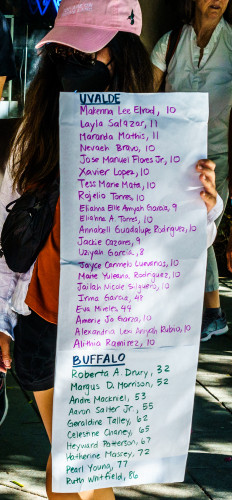 UVALDE
Makenna Lee Elrod, 10
Layla Salazar, 11
Maranda Mathis, 11
Nevaeh Bravo, 10
Jose Manuel Flores Jr, 10
Xavier Lopez, 10
Tess Marie Mata, 10
Rojelio Torres, 10
Eliahna Elle Amyah Garcia, 9
Eliahna A. Torres, 10
Annabell Guadalupe Rodriguez, 10
Jackie Cazares, 9
Uziyah Garcia, 8
Jayce Carmelo Luevanos, 10
Maite Yuleana Rodriguez, 10
Jailah Nicole Silguero, 10
Irma Garcia, 48
Eva Mireles, 44
Amerie Jo Garza, 10
Alexandria Lexi Aniyah Rubio, 10
Alithia Ramirez, 10
BUFFALO
Roberta A. Drury, 32
Margus D. Morrison, 52
Andre Mackniel, 53
Aaron Salter Jr., 55
Geraldine Talley, 62
Celestine Chaney, 65
Heyward Patterson, 67
Katherine Massey, 72
Pearl Young, 77
Ruth Whitfield, 86